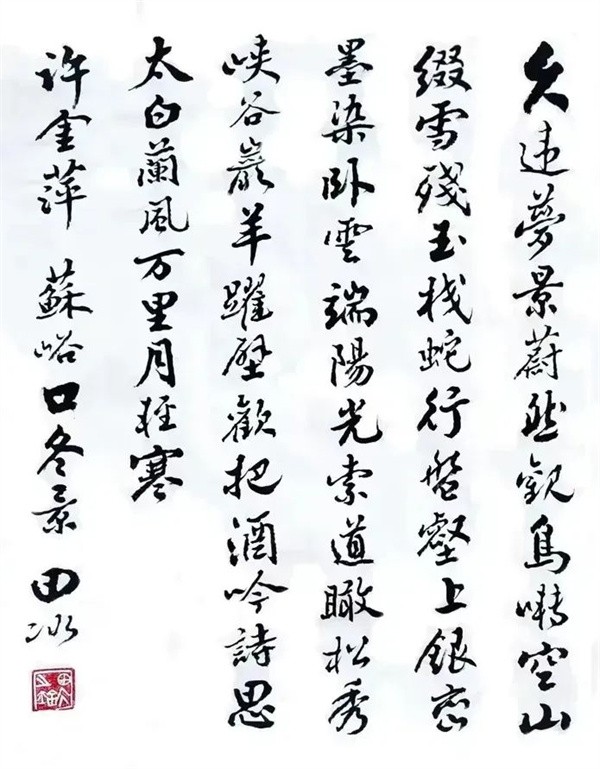 久違夢景蔚然觀鳥囀空山
綴雪殘玉棧蛇行盤壑上銀巒
墨染卧雲端陽光索道瞰松秀
峽谷巖羊躍壁歡把酒吟詩思
太白蘭風万里月寒
許金萍 蘇峪口冬景 田冰